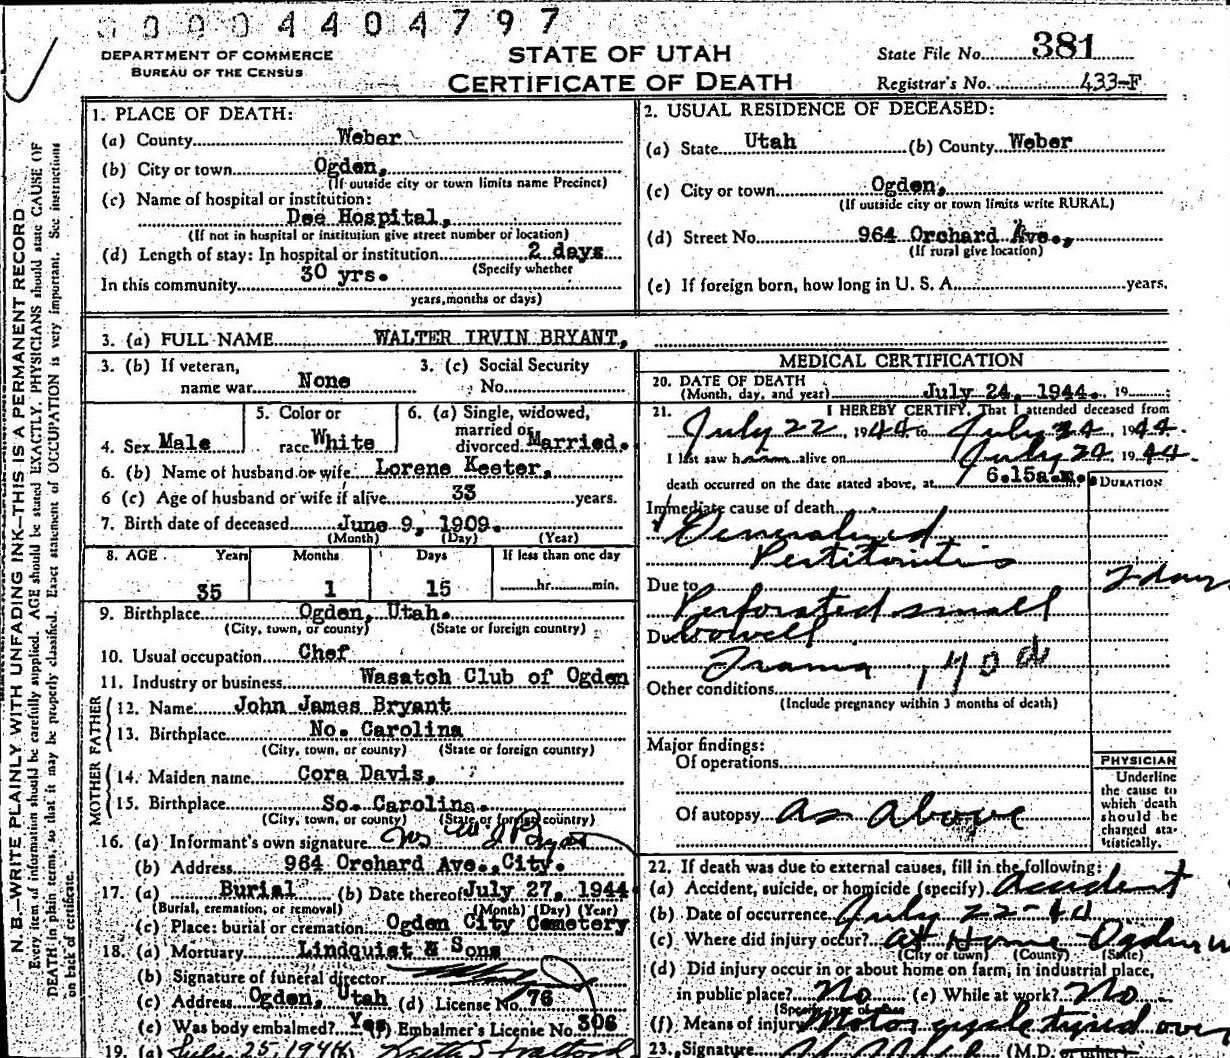 0004404797
DEPARTMENT OF COMMERCE
BUREAU OF THE CENSUS
STATE OF UTAH
CERTIFICATE OF DEATH
State File No. 381
Registrar's No. 433-F
N. B.—WRITE PLAINLY WITH UNFADING INK—THIS IS A PERMANENT RECORD
Every item of information should be carefully supplied. AGE should be stated EXACTLY. PHYSICIANS should state CAUSE OF
DEATH in plain terms, so that it may be properly classified. Exact statement of OCCUPATION is very important. See instructions
on back of certificate.
1. PLACE OF DEATH:
(a) County Weber
(b) City or town Ogden,
(If outside city or town limits name Precinct)
(c) Name of hospital or institution:
Dee Hospital,
(If not in hospital or institution give street number or location)
(d) Length of stay: In hospital or institution 2 days
(Specify whether
In this community 30 yrs.
years, months or days)
2. USUAL RESIDENCE OF DECEASED:
(a) State Utah (b) County Weber
(c) City or town Ogden,
(If outside city or town limits write RURAL)
(d) Street No. 964 Orchard Ave.,
(If rural give location)
(e) If foreign born, how long in U. S. A. years.
3. (a) FULL NAME WALTER IRVIN BRYANT,
3. (b) If veteran,
name war None
3. (c) Social Security
No.
4. Sex Male
5. Color or
race White
6. (a) Single, widowed,
married or
divorced Married.
6. (b) Name of husband or wife Lorene Keeter,
6 (c) Age of husband or wife if alive 33 years.
7. Birth date of deceased June 9, 1909.
(Month) (Day) (Year)
8. AGE Years Months Days If less than one day
35 1 15 hr. min.
9. Birthplace Ogden, Utah.
(City, town, or county) (State or foreign country)
10. Usual occupation Chef
11. Industry or business Wasatch Club of Ogden
FATHER
12. Name John James Bryant
13. Birthplace No. Carolina
(City, town, or county) (State or foreign country)
MOTHER
14. Maiden name Cora Davis,
15. Birthplace So. Carolina.
(City, town, or county) (State or foreign country)
16. (a) Informant's own signature
(b) Address 964 Orchard Ave., City.
17. (a) Burial (b) Date thereof July 27, 1944
(Burial, cremation, or removal) (Month) (Day) (Year)
(c) Place: burial or cremation Ogden City Cemetery
18. (a) Mortuary Lindquist & Sons
(b) Signature of funeral director
(c) Address Ogden, Utah (d) License No. 76
(e) Was body embalmed? Yes (f) Embalmer's License No. 306
19. (a) July 25, 1944
MEDICAL CERTIFICATION
20. DATE OF DEATH
(Month, day, and year) July 24, 1944. 19
21. I HEREBY CERTIFY, That I attended deceased from
July 22, 1944 to July 24, 1944.
I last saw him alive on July 24, 1944.
death occurred on the date stated above, at 6.15a.m.
DURATION
Immediate cause of death
Generalized
Peritonitis
2 days
Due to
Perforated small
Due bowel
Other conditions
(Include pregnancy within 3 months of death)
Major findings:
Of operations
Of autopsy as above
PHYSICIAN
Underline
the cause to
which death
should be
charged sta-
tistically.
22. If death was due to external causes, fill in the following:
(a) Accident, suicide, or homicide (specify) Accident
(b) Date of occurrence July 22-44
(c) Where did injury occur? at Home-Ogden
(City or town) (County) (State)
(d) Did injury occur in or about home on farm, in industrial place,
in public place? No (e) While at work? No
(Specify type of place
(f) Means of injury Motor cycle tiped over
23. Signature (M.D.